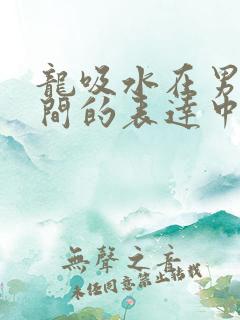 龍吸水在男
間的表達中
無聲之音
未經同意禁止轉載